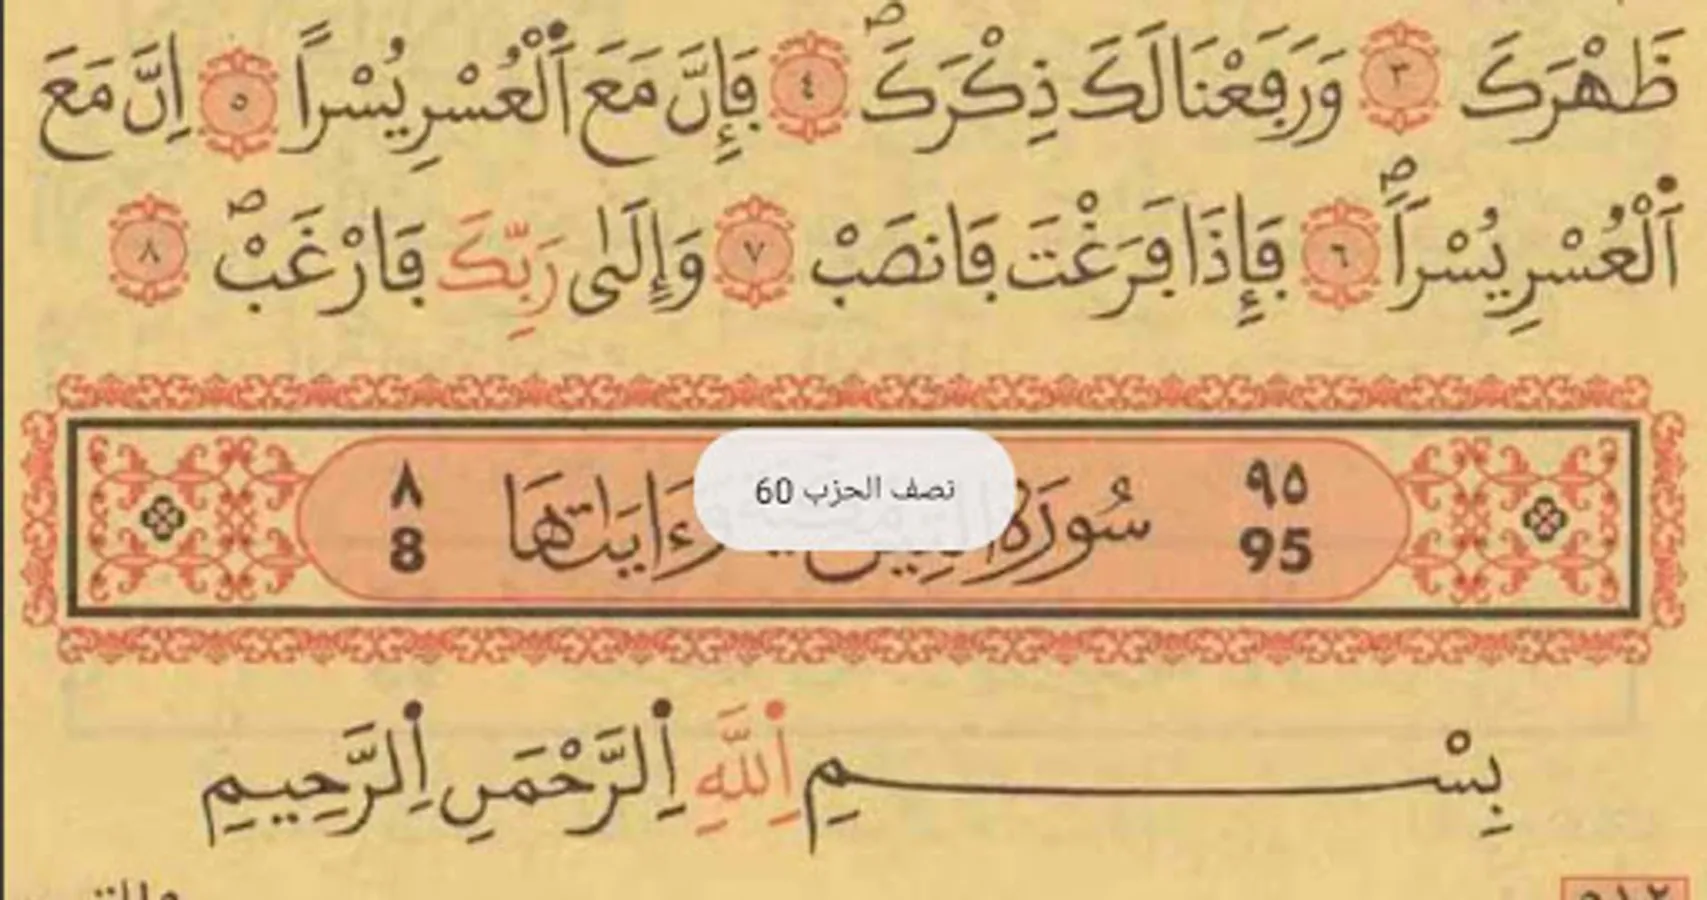 ظَهْرَكَ ٣ وَرَفَعْنَا لَكَ ذِكْرَكَۖ ٤ فَإِنَّ مَعَ اَ۬لْعُسْرِ يُسْراً ٥ اِنَّ مَعَ
اَ۬لْعُسْرِ يُسْراٗۖ ٦ فَإِذَا فَرَغْتَ فَانصَبْ ٧ وَإِلَىٰ رَبِّكَ فَارْغَبْۖ ٨
٩٥ سُورَةُ التِّينِ وَءَايَاتُهَا ٨
95 8
نصف الحزب 60
بِسْمِ اِ۬للَّهِ اِ۬لرَّحْمَٰنِ اِ۬لرَّحِيمِ